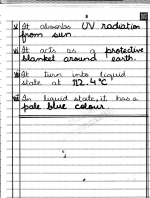 It absorbs UV radiation
from sun.
It acts as a protective
blanket around earth.
It turn into liquid
state at 112.4°C
In liquid state, it has a
pale blue colour.